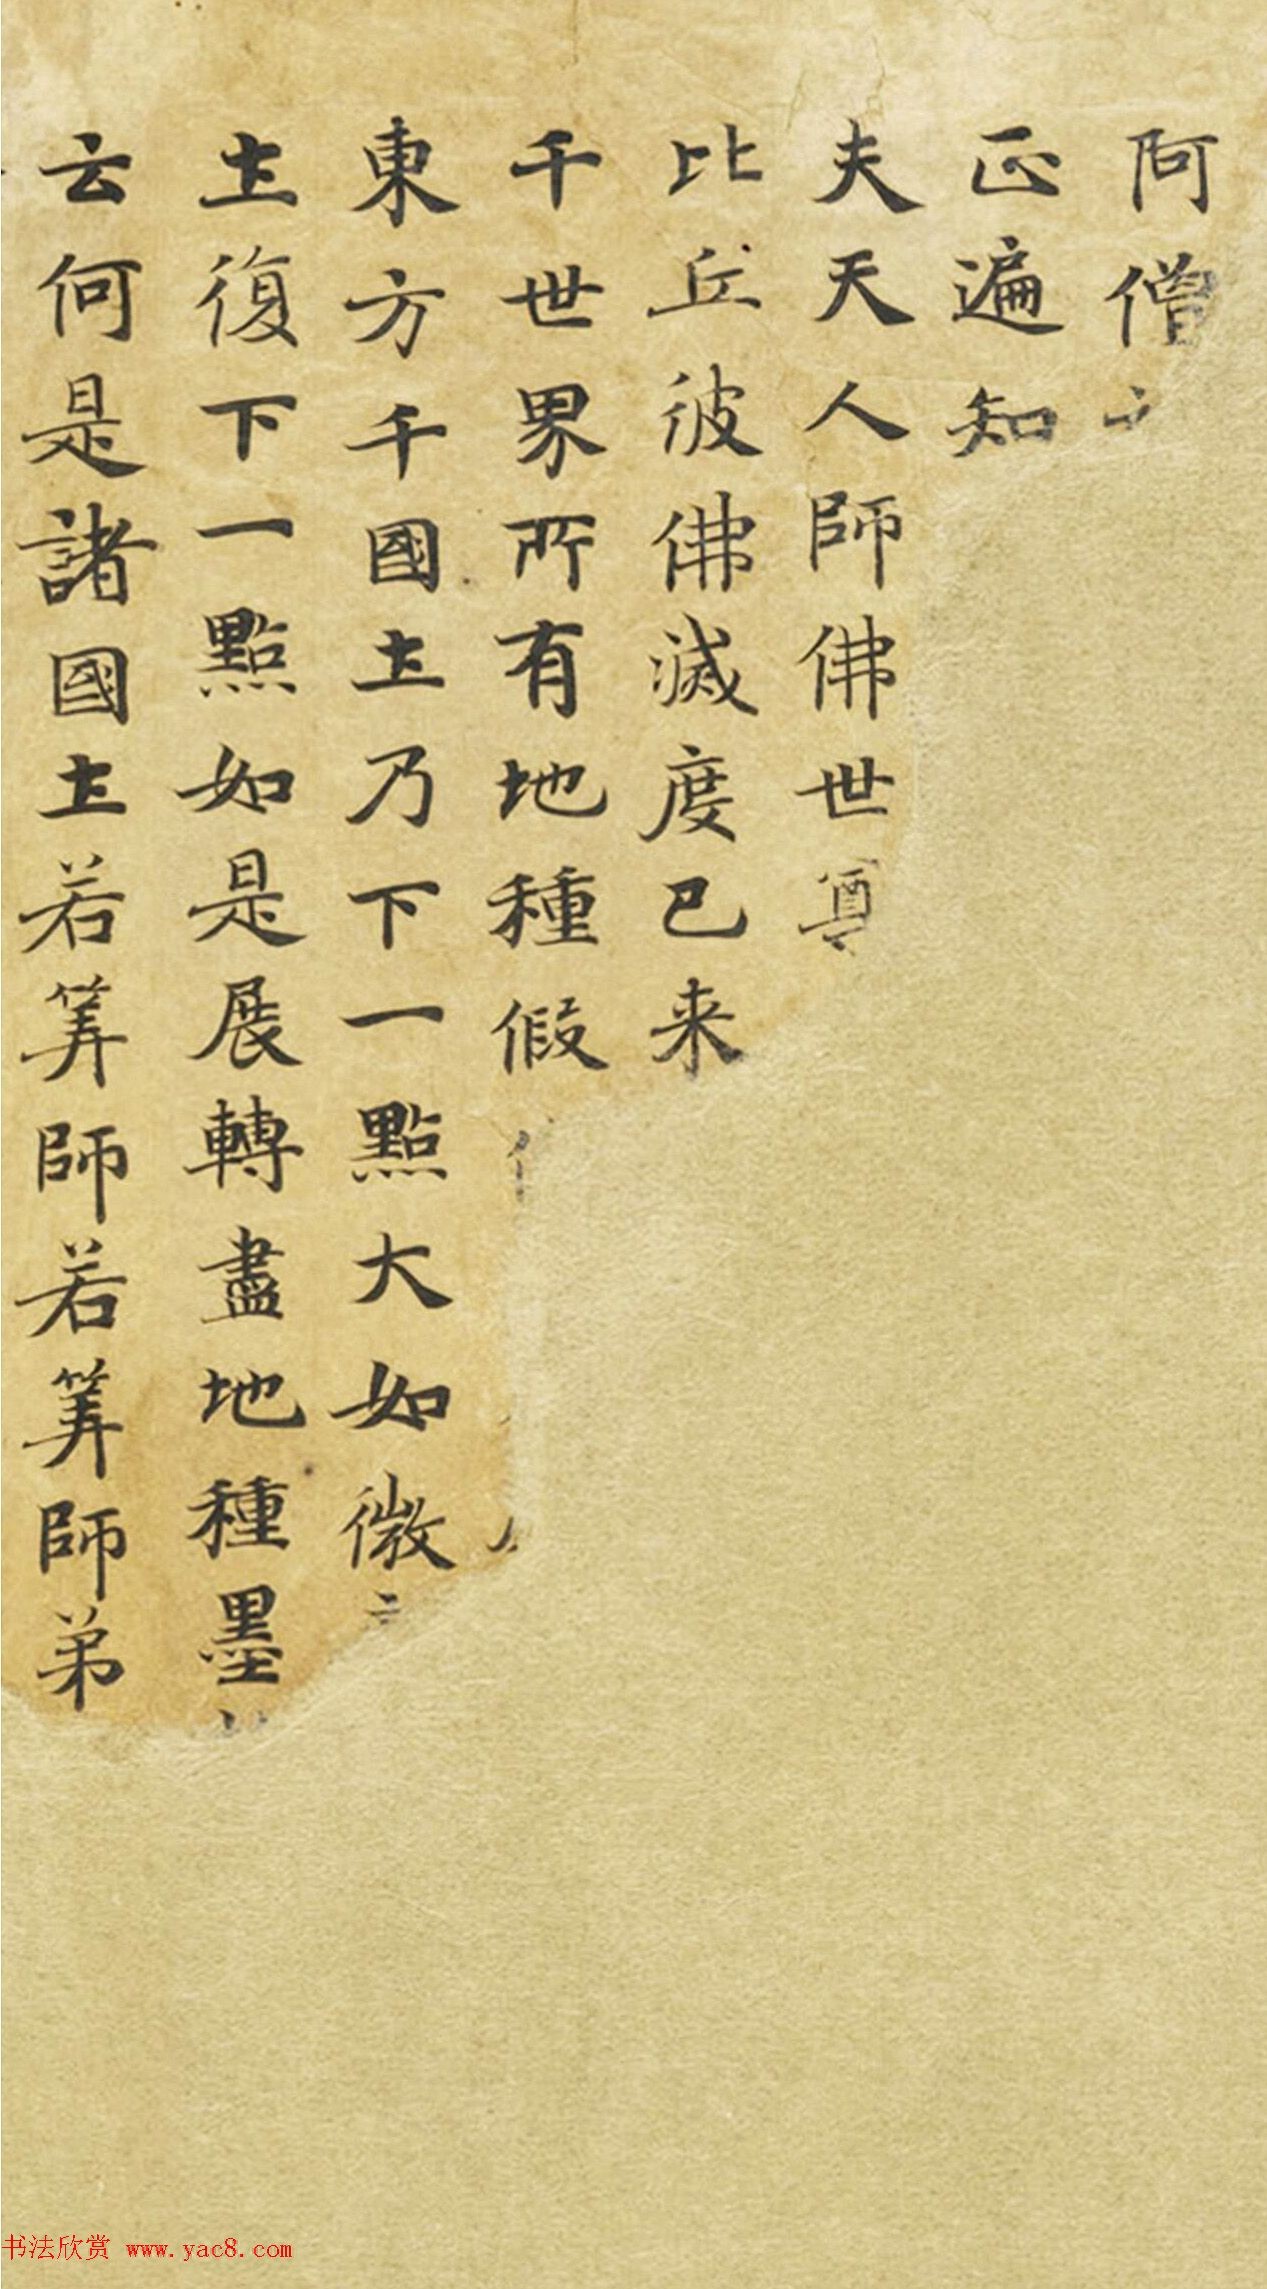 阿僧
正遍知
夫天人師佛世尊
比丘彼佛滅度已来
千世界所有地種假
東方千國土乃下一點大如微
土復下一點如是展轉盡地種墨
云何是諸國土若筭師若筭師弟
书法欣赏 www.yac8.com